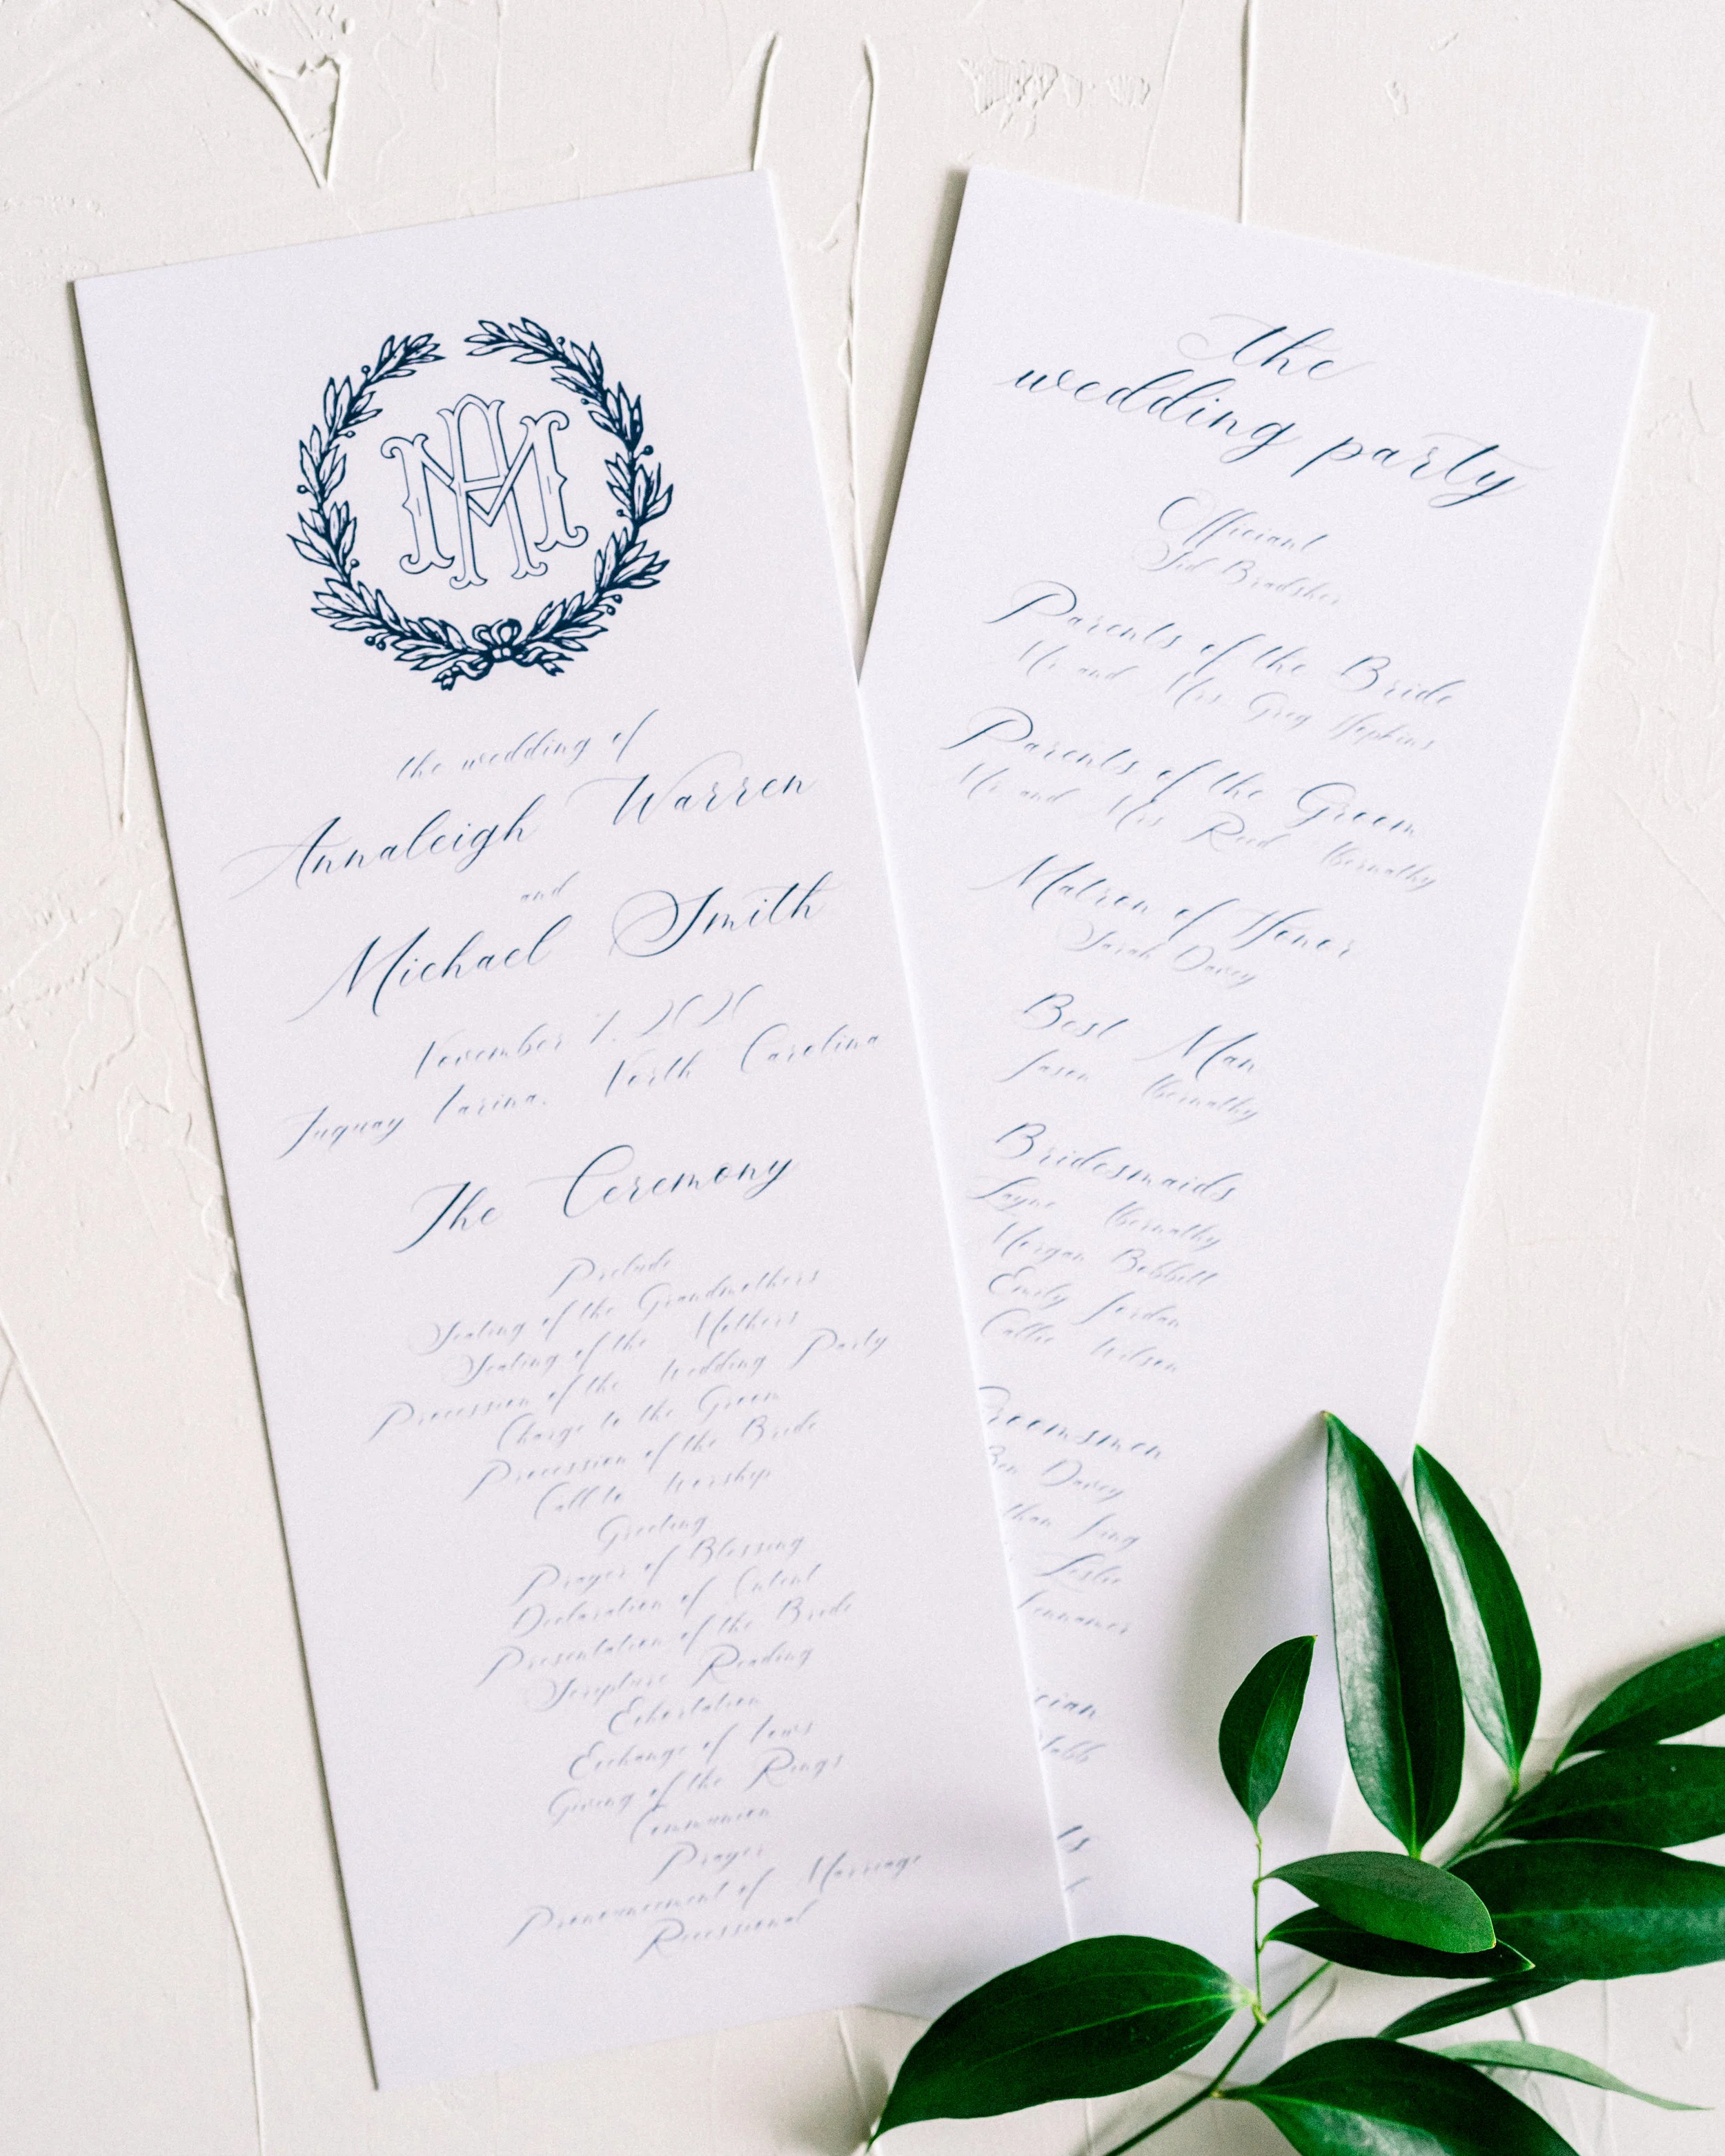 AM
the wedding of
Annaleigh Warren
and
Michael Smith
November 7, 2020
Fuquay Varina, North Carolina
The Ceremony
Prelude
Seating of the Grandmothers
Seating of the Mothers
Procession of the Wedding Party
Charge to the Groom
Procession of the Bride
Call to Worship
Greeting
Prayer of Blessing
Declaration of Intent
Presentation of the Bride
Scripture Reading
Exhortation
Exchange of Vows
Giving of the Rings
Communion
Prayer
Pronouncement of Marriage
Recessional
the
wedding party
Officiant
Sid Bradsher
Parents of the Bride
Mr. and Mrs. Greg Hopkins
Parents of the Groom
Mr. and Mrs. Reed Abernathy
Matron of Honor
Sarah Davey
Best Man
Jason Abernathy
Bridesmaids
Layne Abernathy
Morgan Bobbitt
Emily Jordan
Callie Wilson
Groomsmen
Ben Davey
Leslie